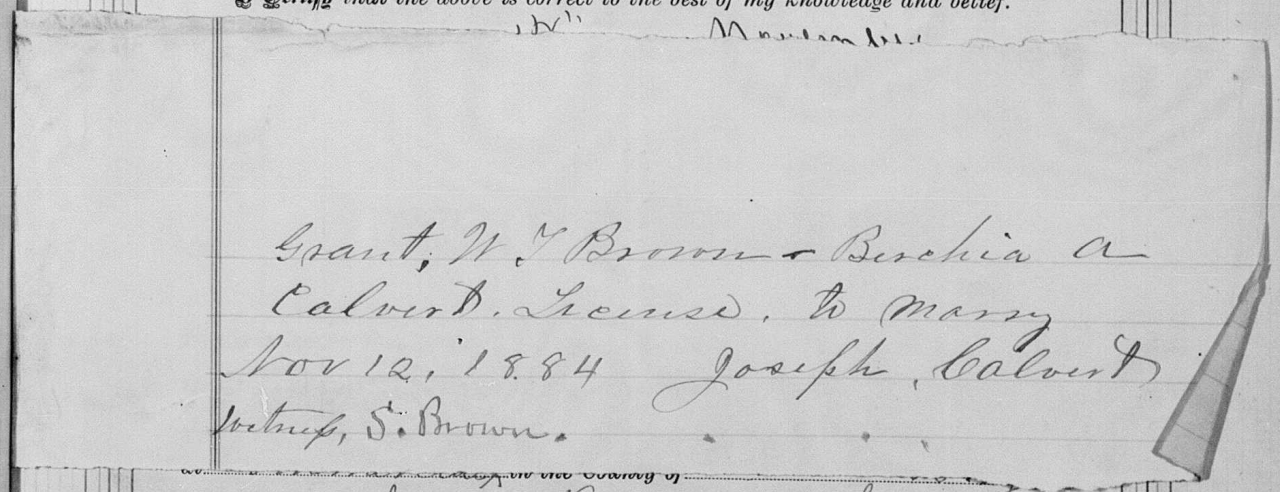 I Certify that the above is correct to the best of my knowledge and belief.
Grant, W T Brown - Berchia A
Calvert. License, to marry
Nov 12, 1884 Joseph, Calvert
witness, S. Brown.
in the County of